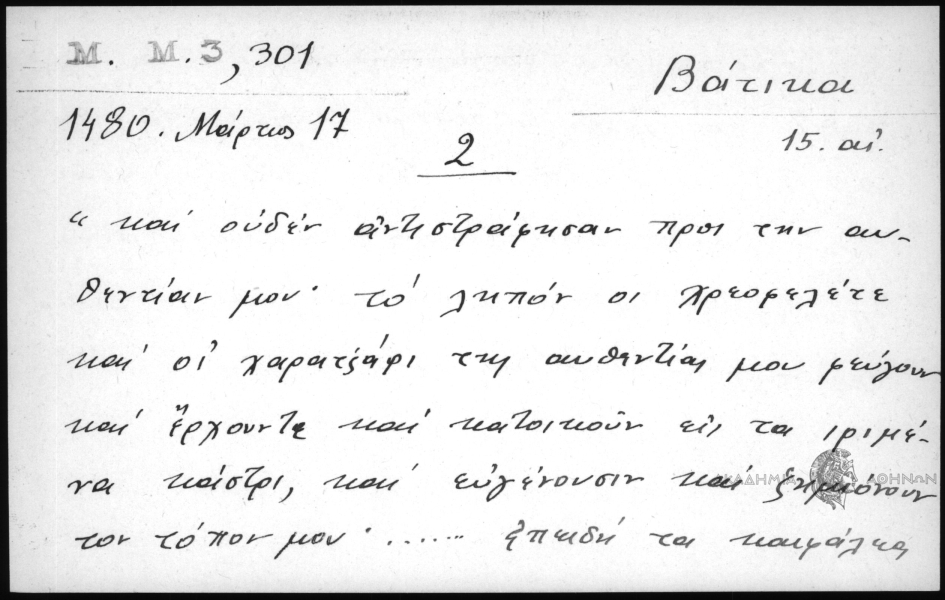 Μ. Μ.3, 301
Βάτικα
1480. Μάρτιος 17
15. αἰ.
2
“ καί οὐδέν ἀντιστράφησαν προς την αυ-
θεντίαν μου· τό ληπόν οι χρεοφελέτε
καί οἱ χαρατζάφι της αυθεντίας μου φεύγουν
καί ἔρχουντε καί κατοικοῦν εις τα ιριμέ-
να κάστρι, καί εὐγένουσιν καί ξημιόνουν
ΑΚΑΔΗΜΙΑ ΑΘΗΝΩΝ
τον τόπον μου· ....... ἐπειδή τα καιφάλεα